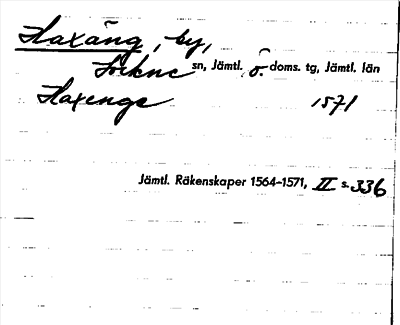 Haxäng, by,
Lockne sn, Jämtl. ö. doms. tg, Jämtl. län
Haxenge 1571
Jämtl. Räkenskaper 1564-1571, II s. 336